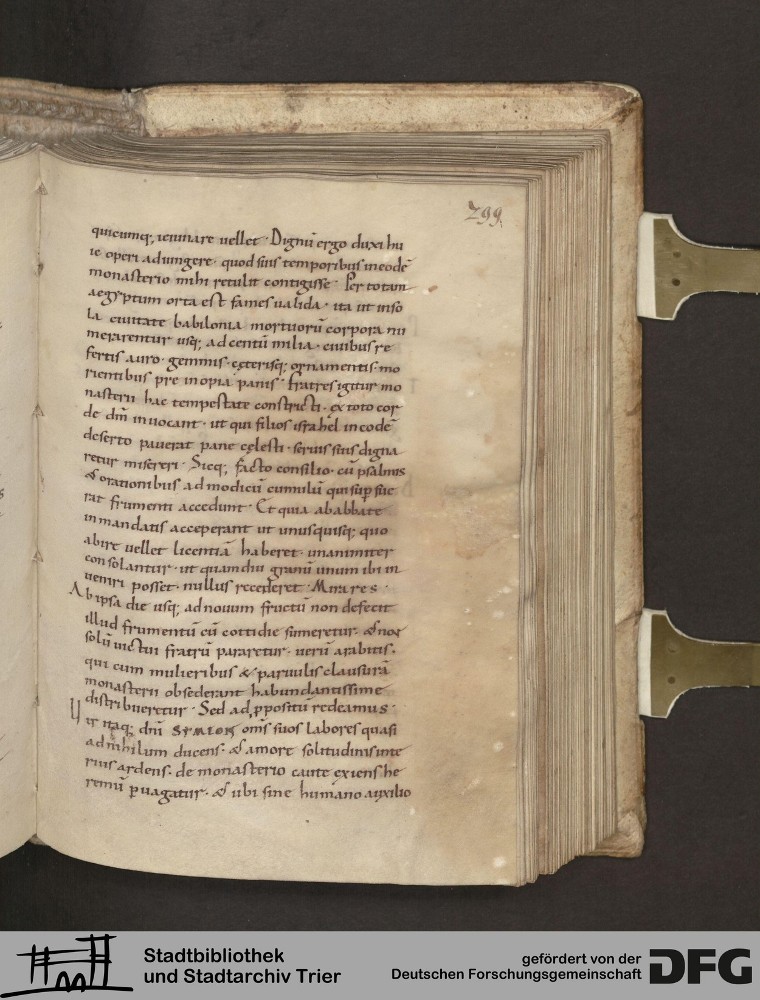 299.
quicumq; ieiunare uellet · Dignū ergo duxi hu
ic operi adiungere · quod suis temporibus in eodē
monasterio mihi retulit contigisse · Per totam
aegyptum orta est fames ualida · ita ut in so
la ciuitate babilonia mortuorū corpora nu
merarentur usq; ad centū milia · ciuibus re
fertis auro · gemmis · cęterisq; ornamentis · mo
rientibus pre inopia panis · fratres igitur mo
nasterii hac tempestate constricti · ex toto cor
de dm̄ inuocant · ut qui filios israhel in eodē
deserto pauerat pane cęlesti · seruis suis digna
retur misereri · Sicq; facto consilio · cū psalmis
& orationibus ad modicū cumulū qui sup̄ fue
rat frumenti accedunt · Et quia ab abbate
in mandatis acceperant ut unusquisq; quo
abire uellet licentiā haberet · unanimiter
consolantur · ut quamdiu granū unum ibi in
ueniri posset · nullus recederet · Mira res ·
Ab ipsa die usq; ad nouum fructū non defecit
illud frumentū cū cottidie sumeretur · & non
solū uictui fratrū pararetur · uerū arabitis ·
qui cum mulieribus & paruulis clausurā
monasterii obsederant habundantissime
distribueretur · Sed ad ꝓpositū redeamus ·
Uir itaq; dm̄ SYMEON om̄s suos labores quasi
ad nihilum ducens · & amore solitudinis inte
rius ardens · de monasterio caute exiens he
remū ꝑuagatur · & ubi sine humano auxilio
Stadtbibliothek
und Stadtarchiv Trier
gefördert von der
Deutschen Forschungsgemeinschaft
DFG